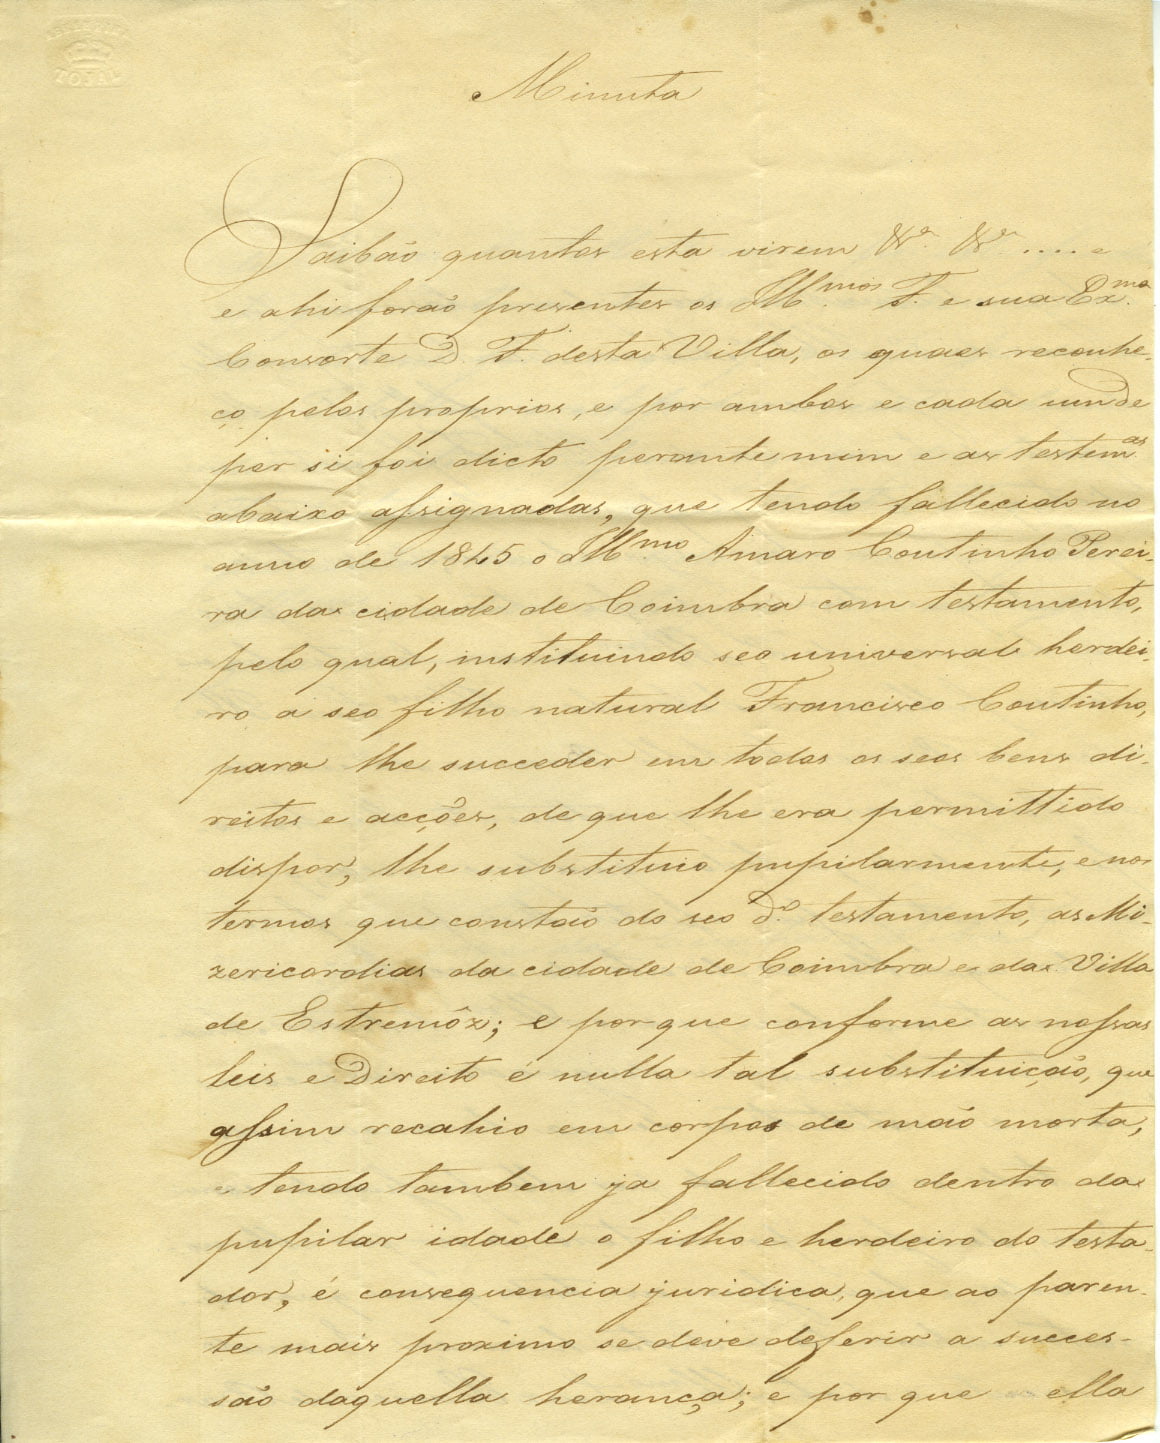 TOJAL
Minuta
Saibão quantos esta virem &ª. &ª. .... e
e ahi forão presentes os Illmos. F. e sua Exma.
Consorte D. F. desta Villa, os quaes reconhe-
ço pelos proprios, e por ambos e cada um de
per si foi dicto perante mim e as testemas.
abaixo assignadas, que tendo fallecido no
anno de 1845 o Illmo. Amaro Coutinho Perei-
ra da cidade de Coimbra com testamento,
pelo qual, instituindo seo universal herdei-
ro a seo filho natural Francisco Coutinho,
para lhe succeder em todos os seos bens di-
reitos e acções, de que lhe era permittido
dispor, lhe substituio pupilarmente, e nos
termos que constão do seo dº. testamento, as Mi-
zericordias da cidade de Coimbra e da Villa
de Estremôz; e por que conforme as nossas
leis e Direito é nulla tal substituição, que
assim recahio em corpos de mão morta,
e tendo tambem ja fallecido dentro da
pupilar idade o filho e herdeiro do testa-
dor, é consequencia juridica, que ao paren-
te mais proximo se deve deferir a succes-
são daquella herança; e por que ella